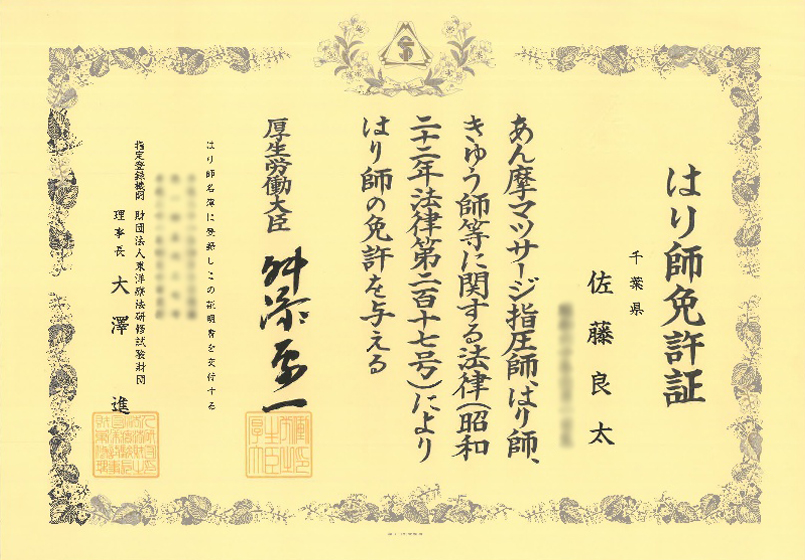 はり師免許証
千葉県
佐藤良太
あん摩マツサージ指圧師、はり師、
きゆう師等に関する法律(昭和
二十二年法律第二百十七号)により
はり師の免許を与える
厚生労働大臣
舛添要一
はり師名簿に登録しこの証明書を交付する
指定登録機関 財団法人東洋療法研修試験財団
理事長 大澤進